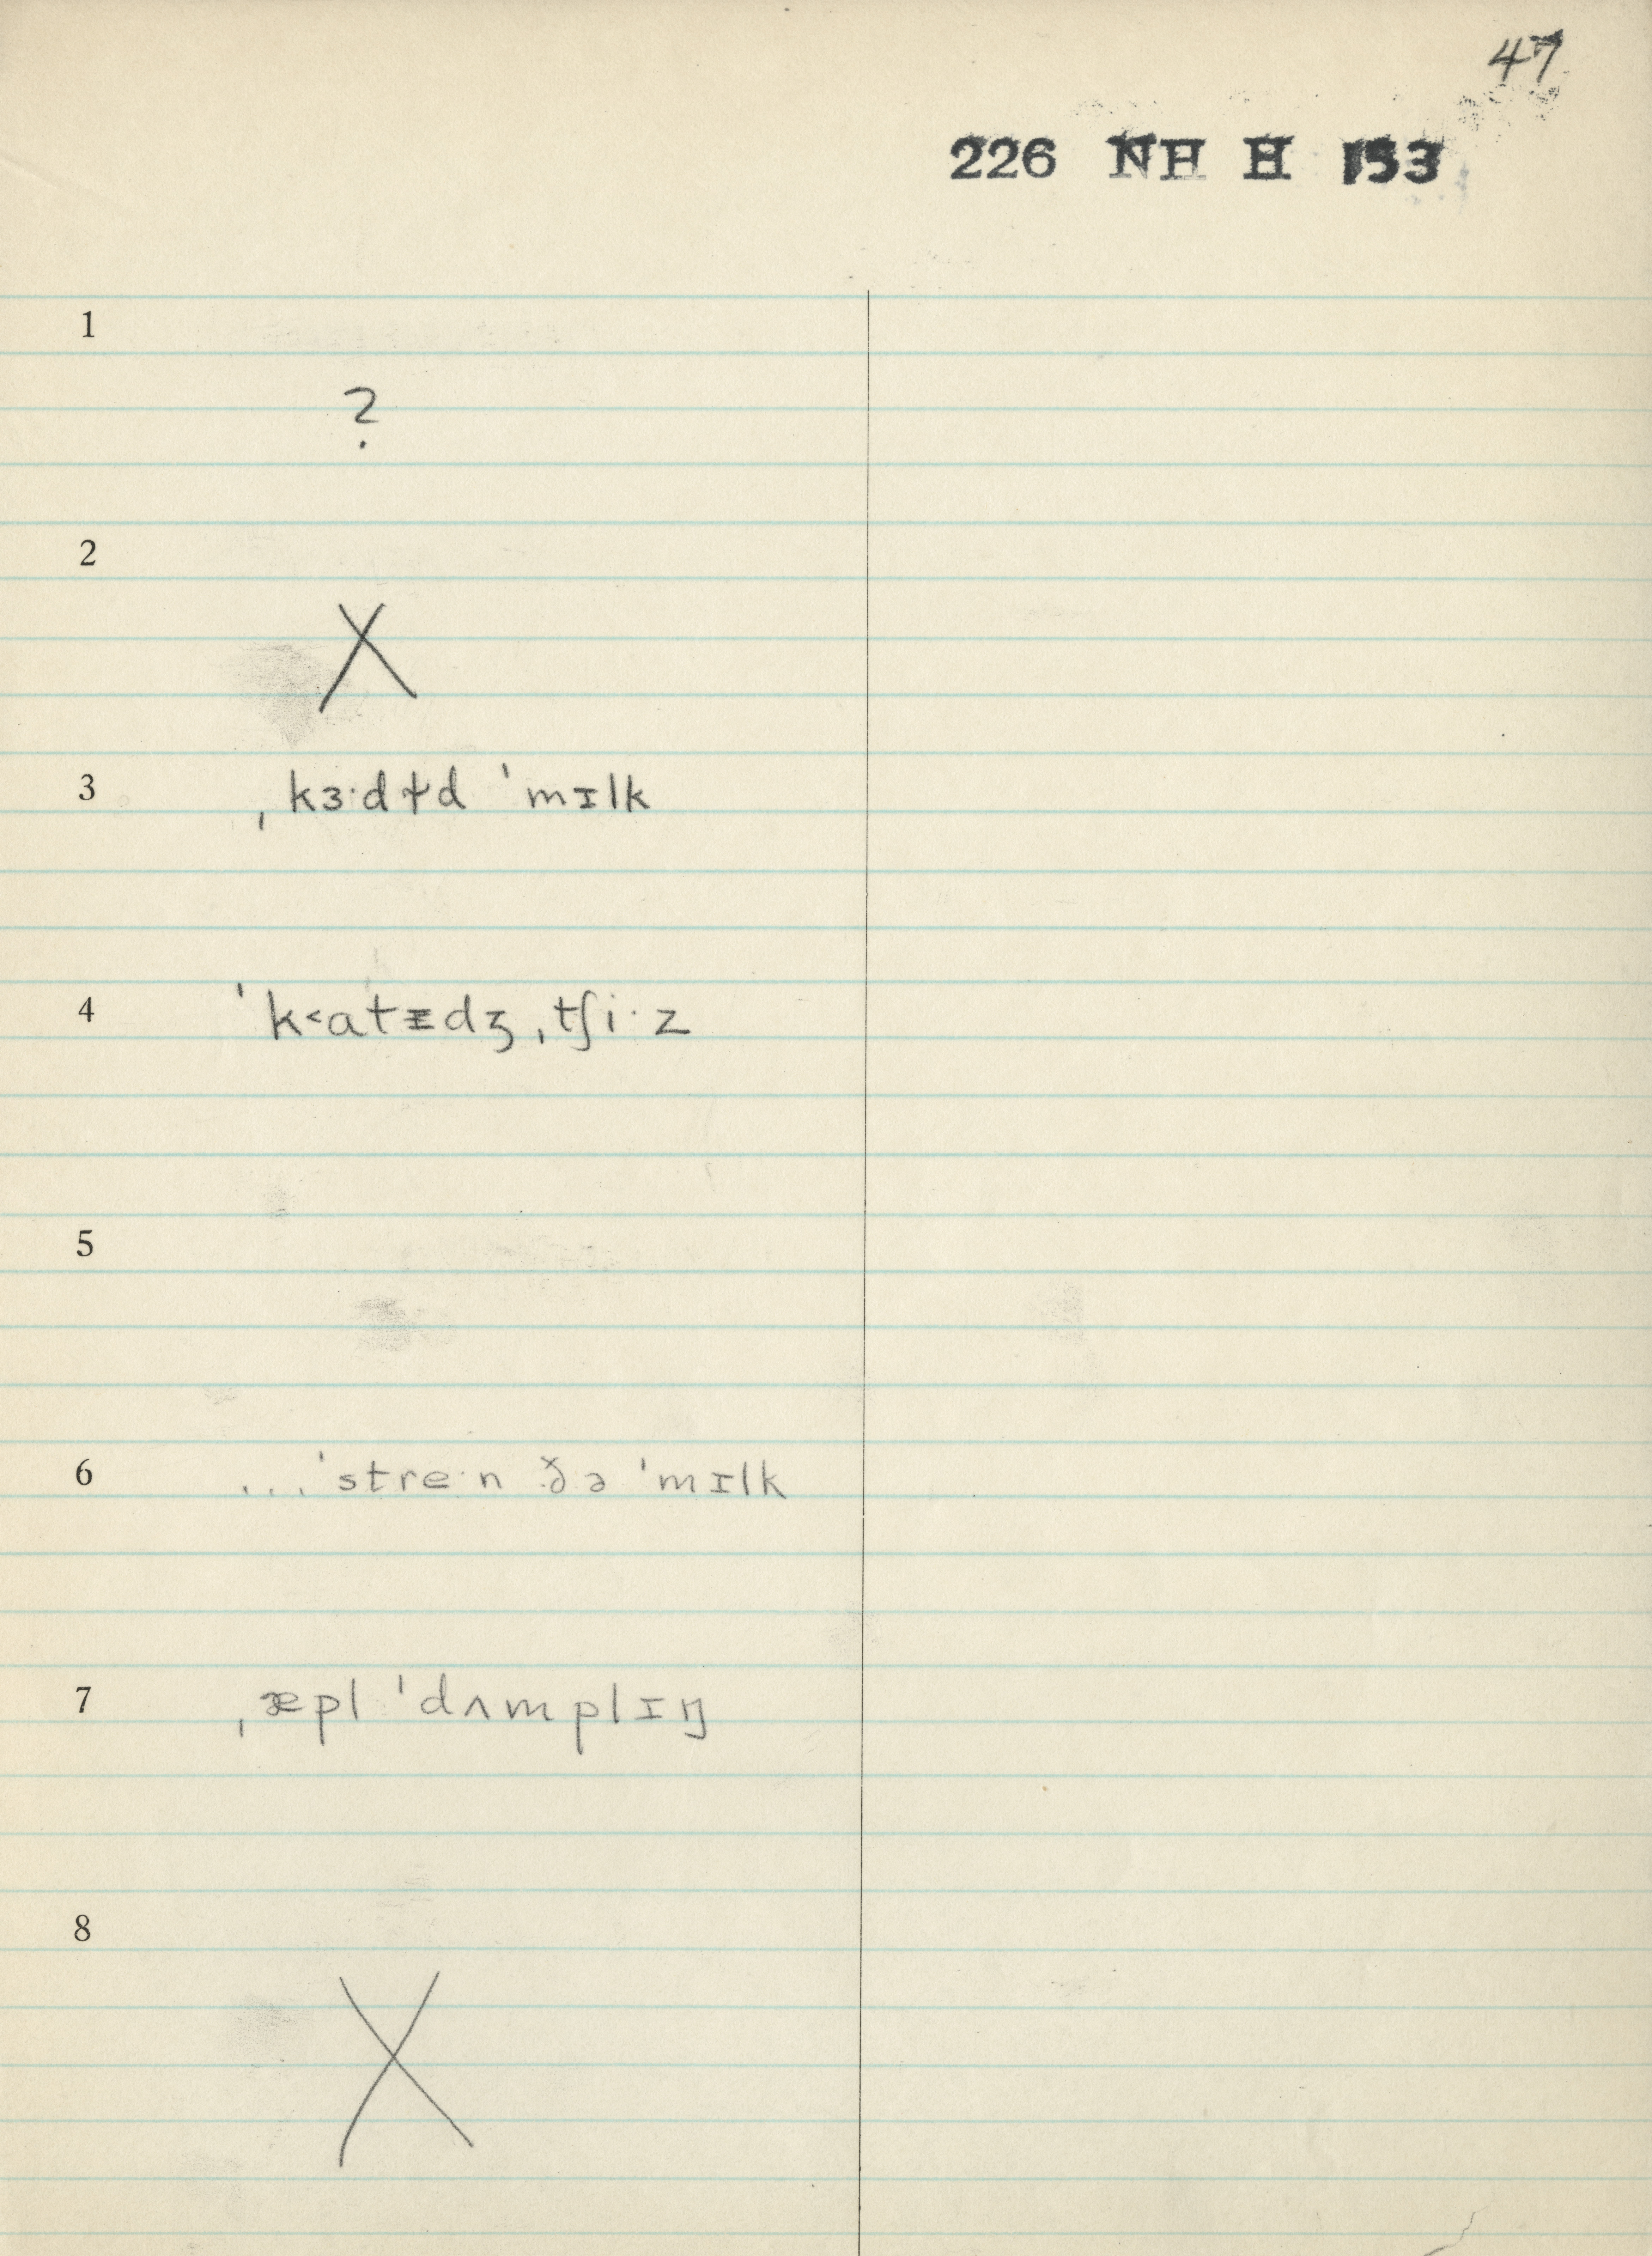 47
226 NH H 153
1
?
2
X
3 ˌkɜ·dɨd ˈmɪlk
4 ˈk˂atᵻdʒ ˌtʃi·z
5
6 ...ˈstre·n ð̌ə ˈmɪlk
7 ˌæpl ˈdʌmplɪŋ
8
X